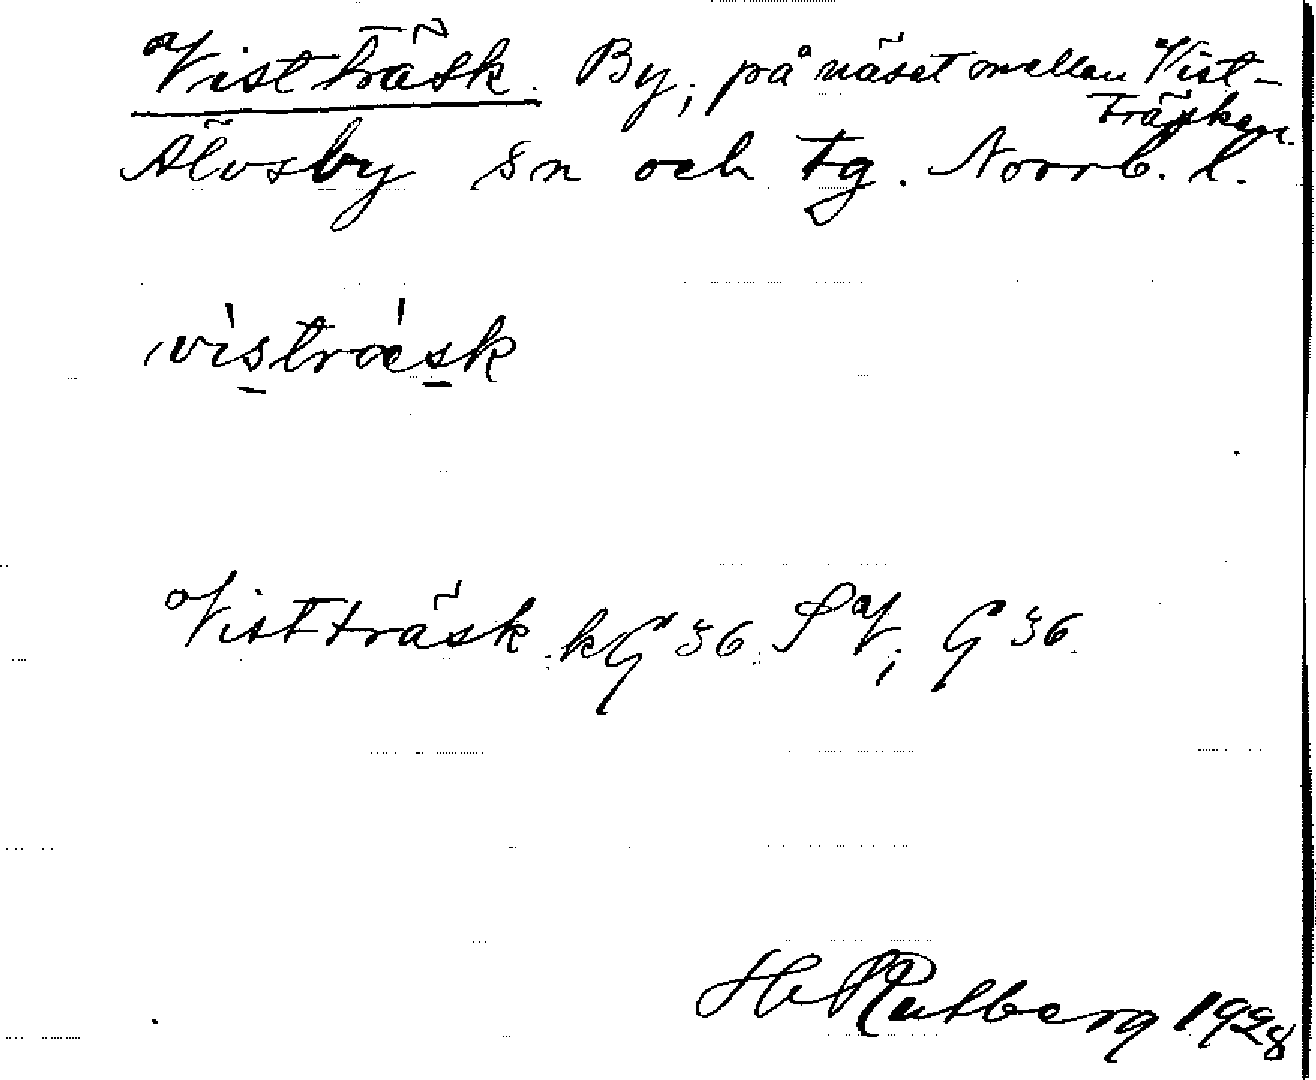 Vistträsk. By, på näset mellan Vist-
träsken.
Älvsby sn och tg. Norrb. l.
vìstrǽsk
Vistträsk kG 36 SV; G 36
H. Rutberg 1928